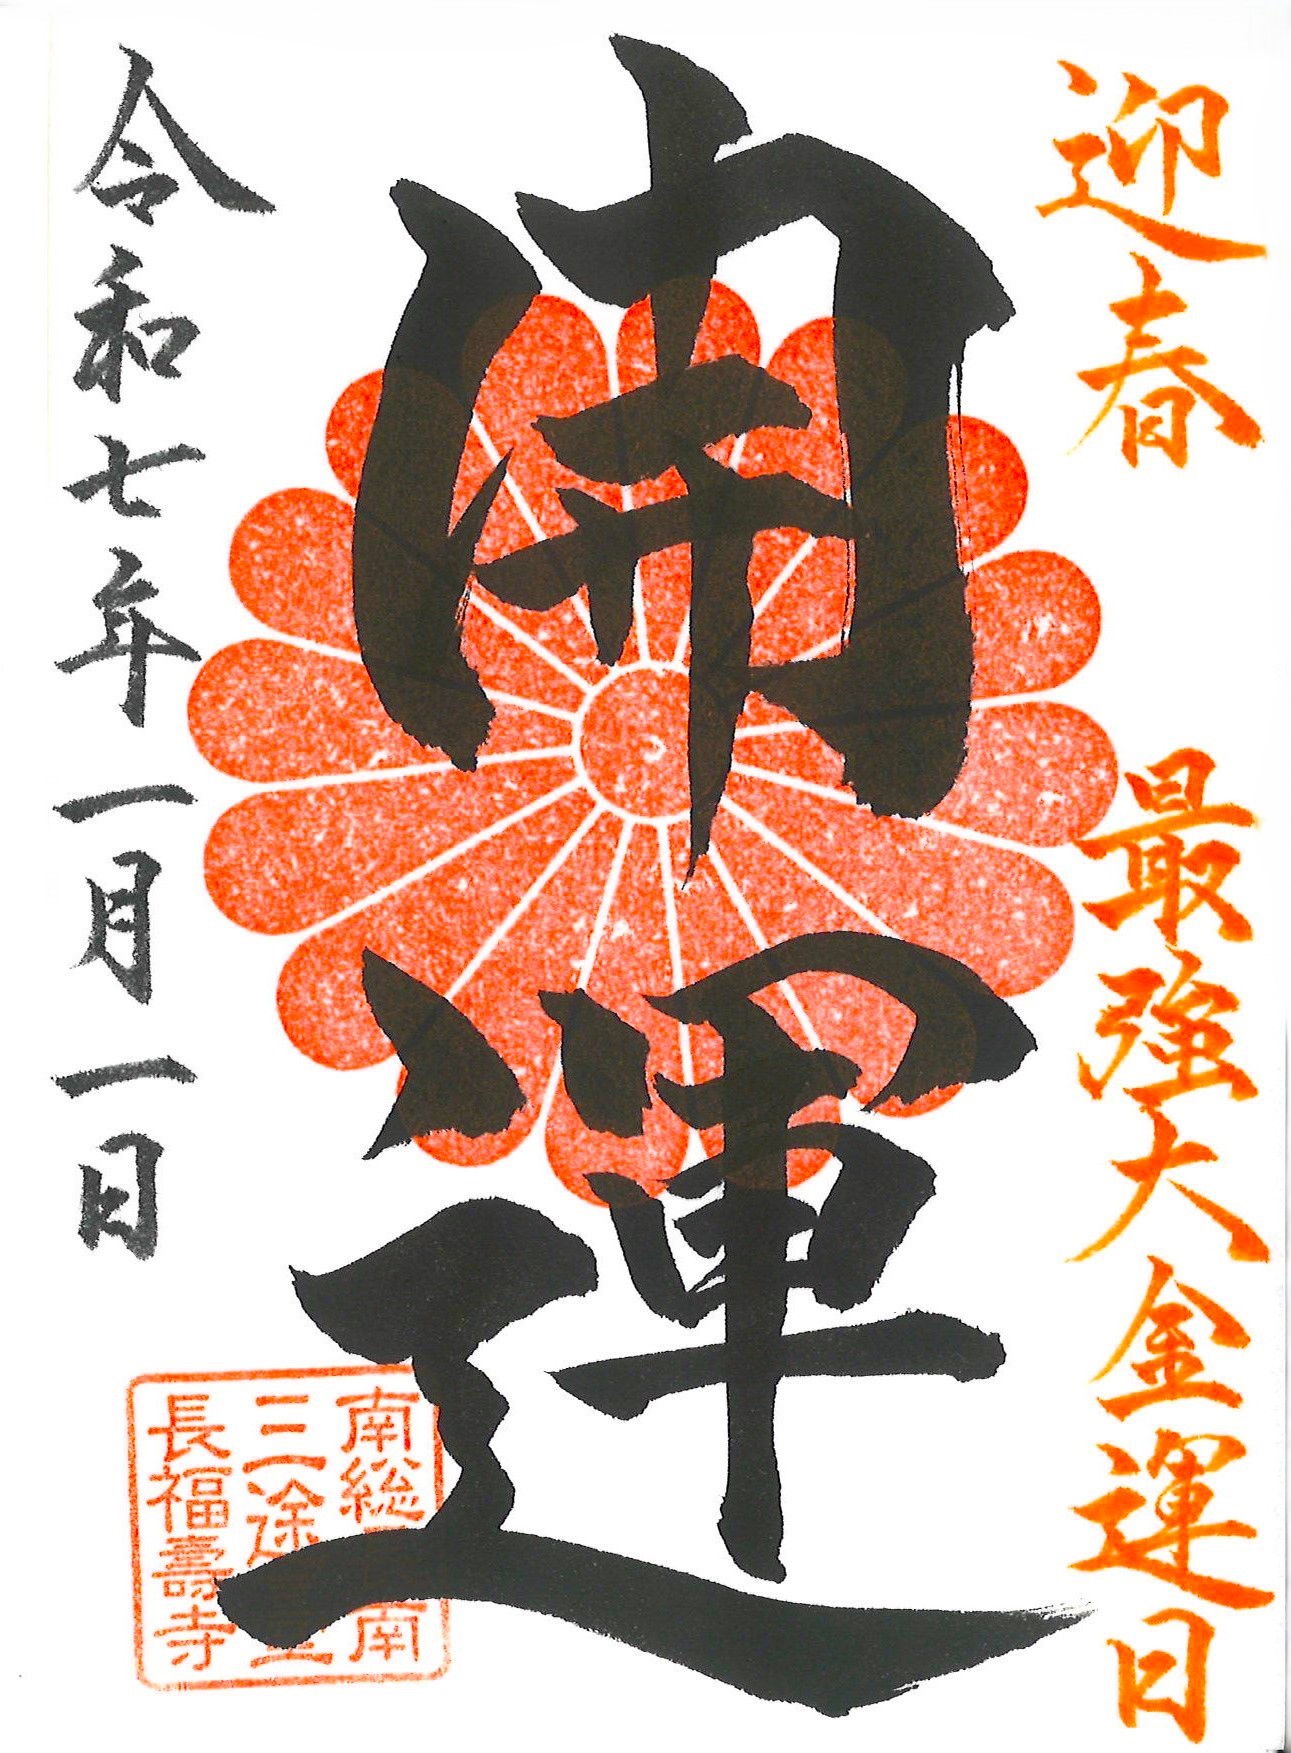 迎春 最強大金運日
開運
令和七年一月一日
南総
南
三途
長福壽寺